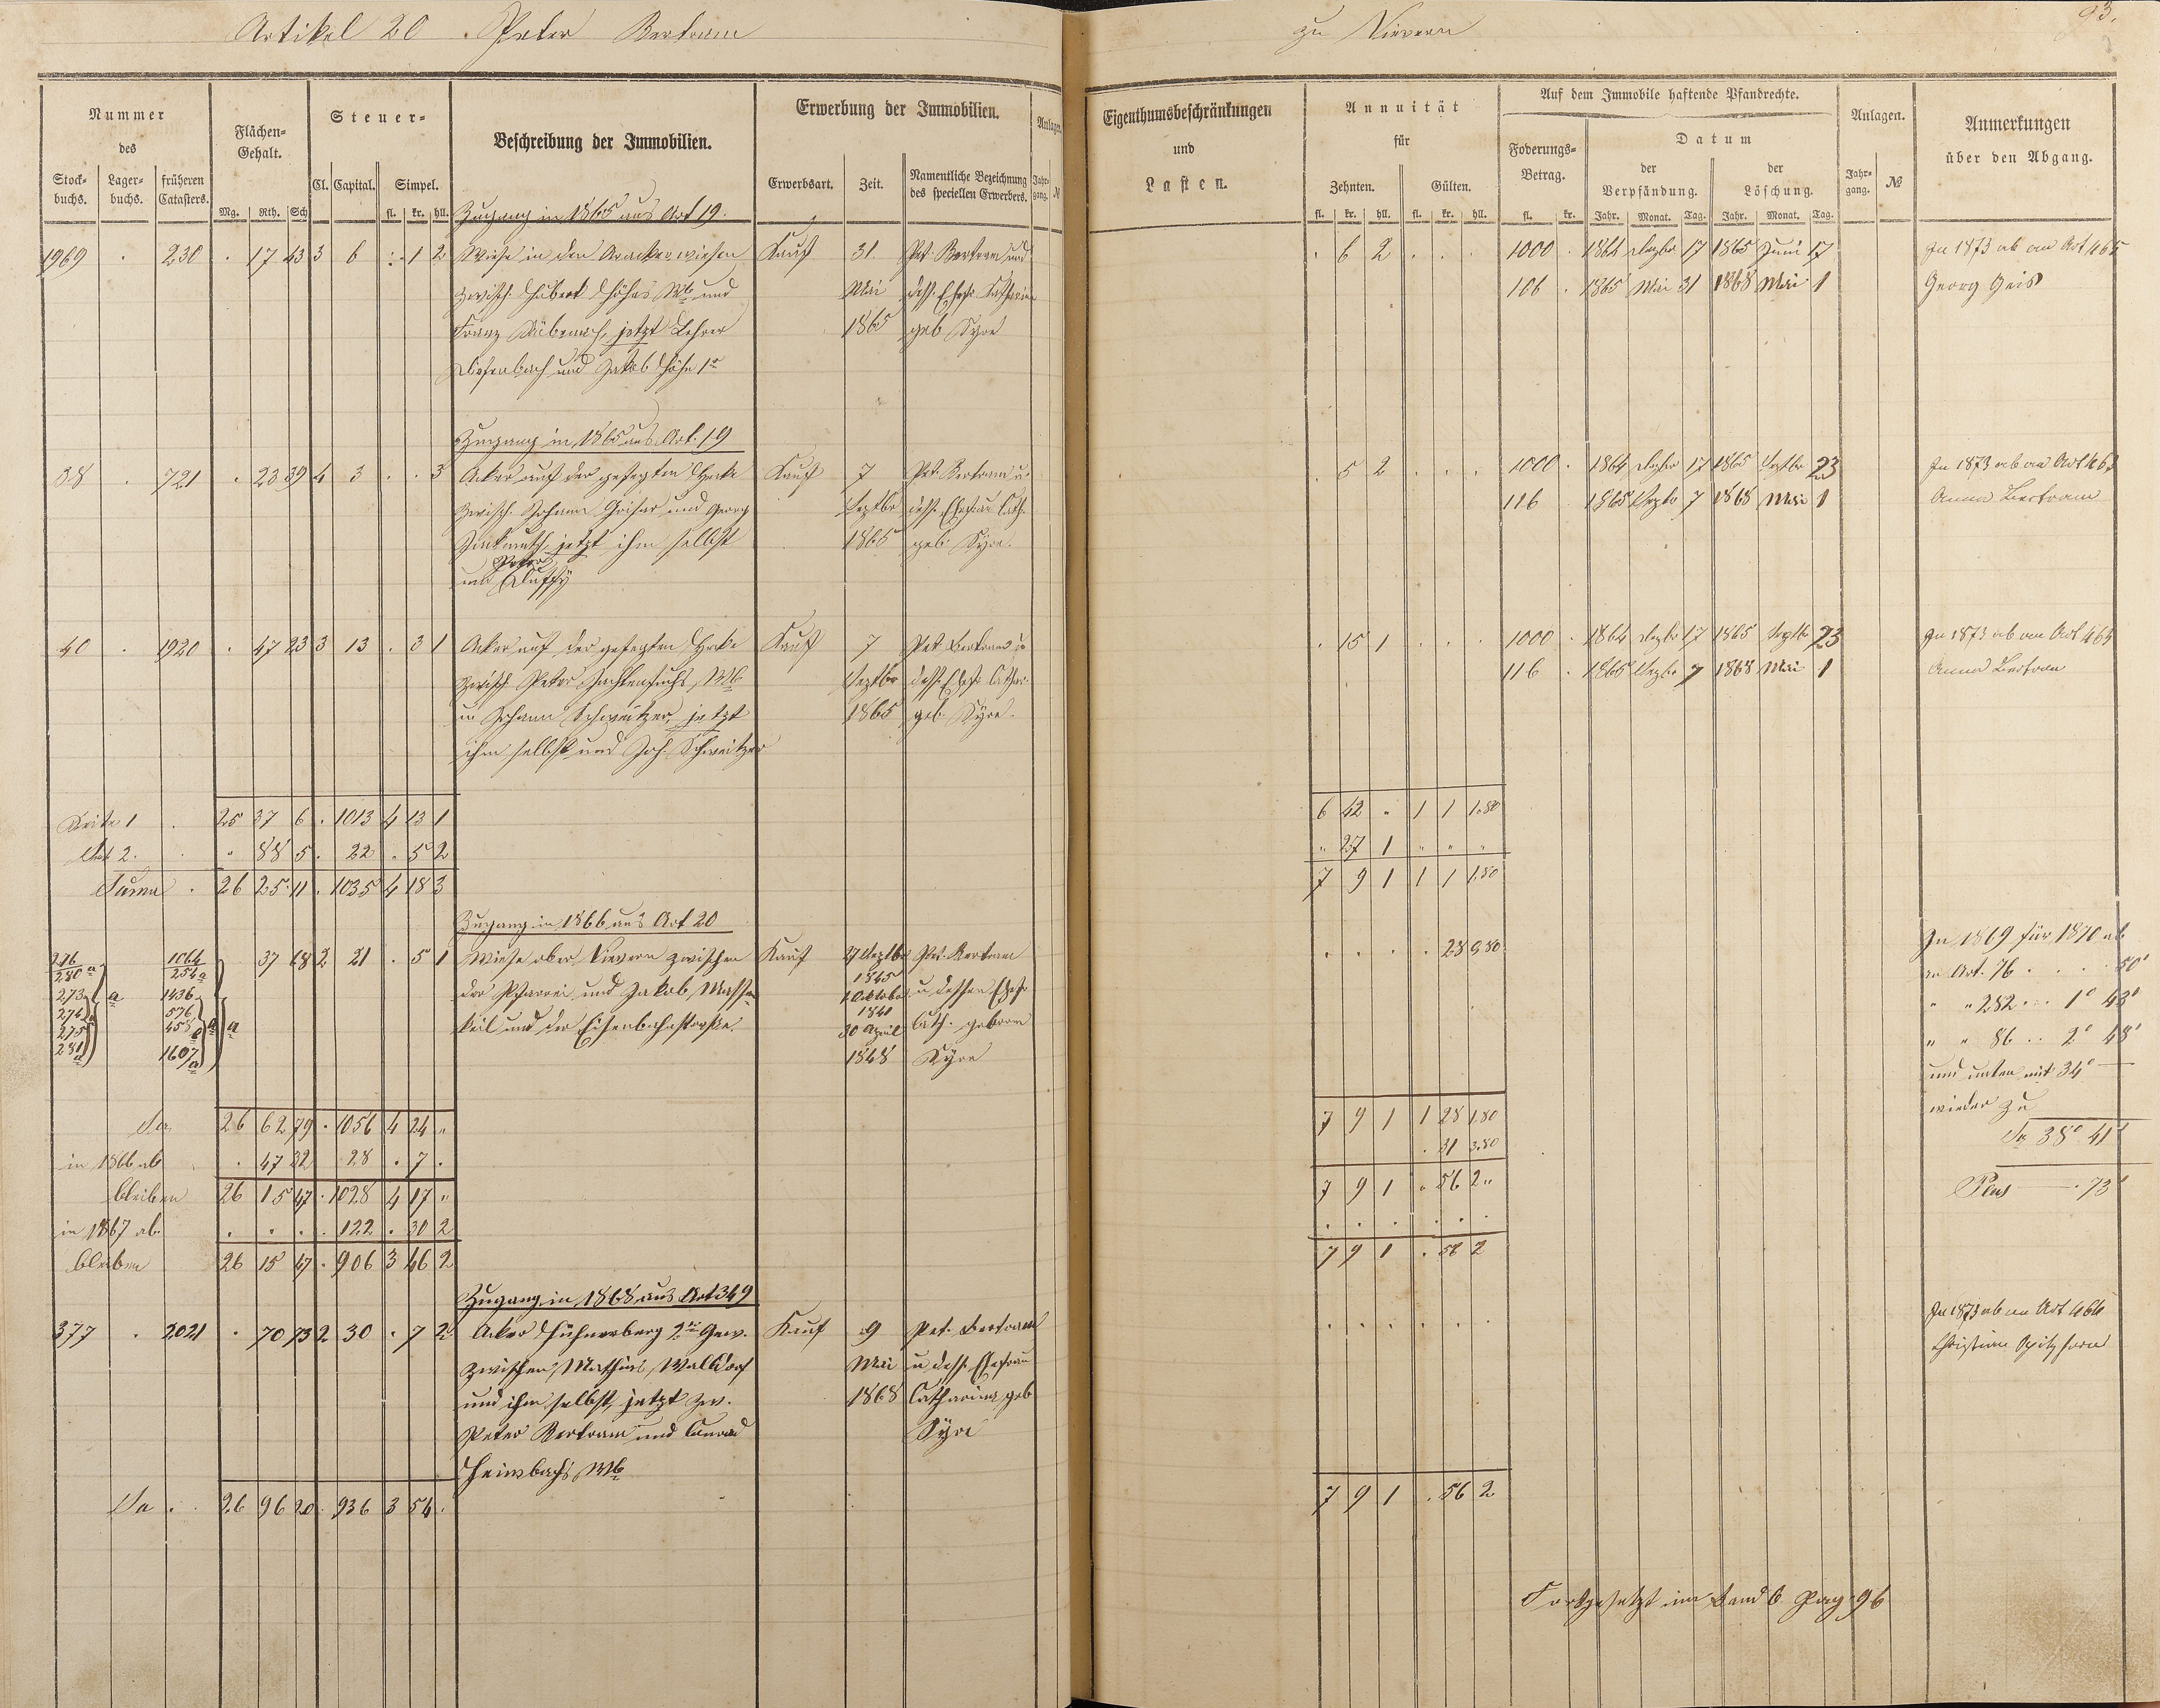 Artikel 20. Peter Bertram
Nummer des
Stock-buchs. Lager-buchs. früheren Catasters.
Flächen-Gehalt.
Mg. Rth. Sch
Steuer-
Cl. Capital. Simpel.
fl. kr. hll.
Beschreibung der Immobilien.
Erwerbung der Immobilien.
Erwerbsart. Zeit. Namentliche Bezeichnung des speciellen Erwerbers.
Anlagen
Jahr-gang. №
Zugang in 1865 aus Art 19.
1969 . 230 . 17 43 3 6 . 1 2 Wiese in den Kauf 31. Pet. Bertram und
zwisch. Hubert Höhns Wb und Mai dess. Ehefr. Catharina
Franz jetzt Lehrer 1865 geb Syre
Diefenbach und Jakob Höhn 1r
Zugang in 1865 aus Art. 19
38 . 721 . 23 39 4 3 . . 3 Acker auf der gesegten Hecke Kauf 7 Pet. Bertram u.
zwisch. Johann und Georg Septbr dess. Ehefrau Cath.
jetzt ihm selbst 1865 geb. Syre.
Peter
und
40 . 1920 . 47 23 3 13 . 3 1 Acker auf der gesegten Hecke Kauf 7 Pet Bertram u
zwisch Peter Wb Septbr dess. Ehefr. Cathar.
u Johann Schweitzer, jetzt 1865 geb. Syre.
ihm selbst und Joh. Schweitzer
Seite 1 . 25 37 6 . 1013 4 13 1
" 2. . " 88 5 . 22 . 5 2
Suma . 26 25 11 . 1035 4 18 3
Zugang in 1866 aus Art 20
216 1064 37 68 2 21 . 5 1 Wiese ober Nievern zwischen Kauf 27 Septbr Pet. Bertram
280 a 254 a
1845
273 a 1436 der Pfarrei und Jakob Massen 1 Oktober u dessen Ehefr
274 576
1840
275 458 a keil und der Eisenbahnstrecke. 30 April Cath. geborn
281 a 1607 a 1848 Syre
Sa 26 62 79 . 1056 4 24 "
in 1866 ab . 47 32 28 . 7 .
bleiben 26 15 47 . 1028 4 17 "
in 1867 ab. . . . . 122 . 30 2
bleiben 26 15 47 . 906 3 46 2
Zugang in 1868 aus Art 349
377 . 2021 . 70 73 2 30 . 7 2 Acker Hühnerberg 2te Gew. Kauf 9 Pet. Bertram
zwischen Mathias Walldorf Mai u dess. Ehefrau
und ihm selbst, jetzt zw. 1868 Catharina geb
Peter Bertram und Conrad Syre
Heimbachs Wb
Sa . . 26 96 20 . 936 3 54 .
zu Nievern
93.
Eigenthumsbeschränkungen
und
Lasten.
Annuität
für
Zehnten. Gülten.
fl. kr. hll. fl. kr. hll.
Auf dem Immobile haftende Pfandrechte.
Foderungs-Betrag.
fl. kr.
Datum
der Verpfändung. der Löschung.
Jahr. Monat. Tag. Jahr. Monat. Tag.
Anlagen.
Jahr-gang. №
Anmerkungen
über den Abgang.
. 6 2 . . . 1000 . 1864 Dezbr 17 1865 Juni 17 In 1873 ab an Art 465
106 . 1865 Mai 31 1868 Mai 1 Georg Geis
. 5 2 . . . 1000 . 1864 Dezbr 17 1865 Septbr 23 In 1873 ab an Art 463
116 . 1865 Septbr 7 1868 Mai 1 Anna Bertram
. 15 1 . . . 1000 . 1864 Dezbr 17 1865 Septbr 23 In 1873 ab an Art 463
116 . 1865 Septbr 7 1868 Mai 1 Anna Bertram
6 42 " 1 1 1.80
" 27 1 " " "
7 9 1 1 1 1.80
In 1869 für 1870 ab
. . . . 28 9.80 an Art. 76 . . . . 50'
" " 282 . . . 1° 43'
" " 86 . . 2° 48'
und unten mit 34° —
wieder zu
7 9 1 1 28 1.80
Sa 38° 41'
. 31 3.80
7 9 1 " 56 2 "
Plus —— . 73'
. . . . . .
7 9 1 . 56 2
In 1873 ab an Art 464
. . . . . .
Christian Spitzhorn
7 9 1 . 56 2
Fortgesetzt im Band 6 Pag. 96